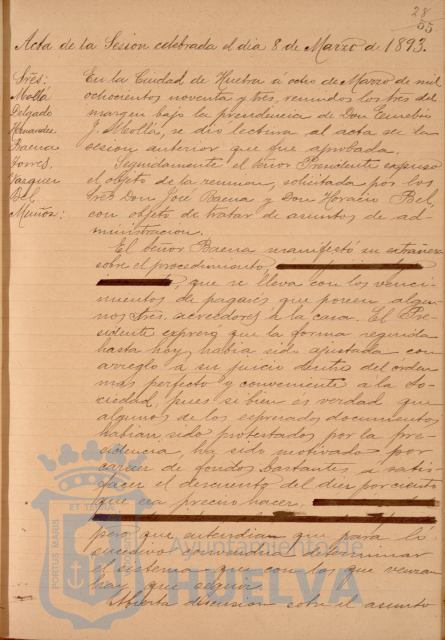 28
55
Acta de la Sesion celebrada el dia 8 de Marzo de 1893.
Sres:
Mollá
Delgado
Hernandez
Baena
Torres
Vazquez
Bel
Muñoz:
En la Ciudad de Huelva á ocho de Marzo de mil
ochocientos noventa y tres, reunidos los tres del
margen bajo la presidencia de Don Eusebio
J. Mollá, se dió lectura al acta de la
sesion anterior que fue aprobada.
Seguidamente el Señor Presidente expuso
el objeto de la reunion, solicitada por los
Sres Don José Baena y Don Horacio Bel,
con objeto de tratar de asuntos de ad-
ministracion.
El Señor Baena manifestó su extrañeza
sobre el procedimiento,
que se lleva con los venci-
mientos de pagarés que poseen algu-
nos tres. acreedores á la casa. El Pre-
sidente expresó que la forma seguida
hasta hoy, habia sido ajustada con
arreglo á su juicio dentro del orden
mas perfecto y conveniente á la So-
ciedad, pues si bien és verdad que
algunos de los expresados documentos
habian sido protestados por la pre-
sidencia, ha sido motivado por
carecer de fondos bastantes á satis-
facer el descuento del diez por ciento
que era preciso hacer.
pero que entendian que para lo
sucesivo determinar
el sistema que con los que venzan
hay que seguir.
Abierta discusion sobre el asunto
PORTUS MARIS ET TERRAE
Ayuntamiento de
HUELVA